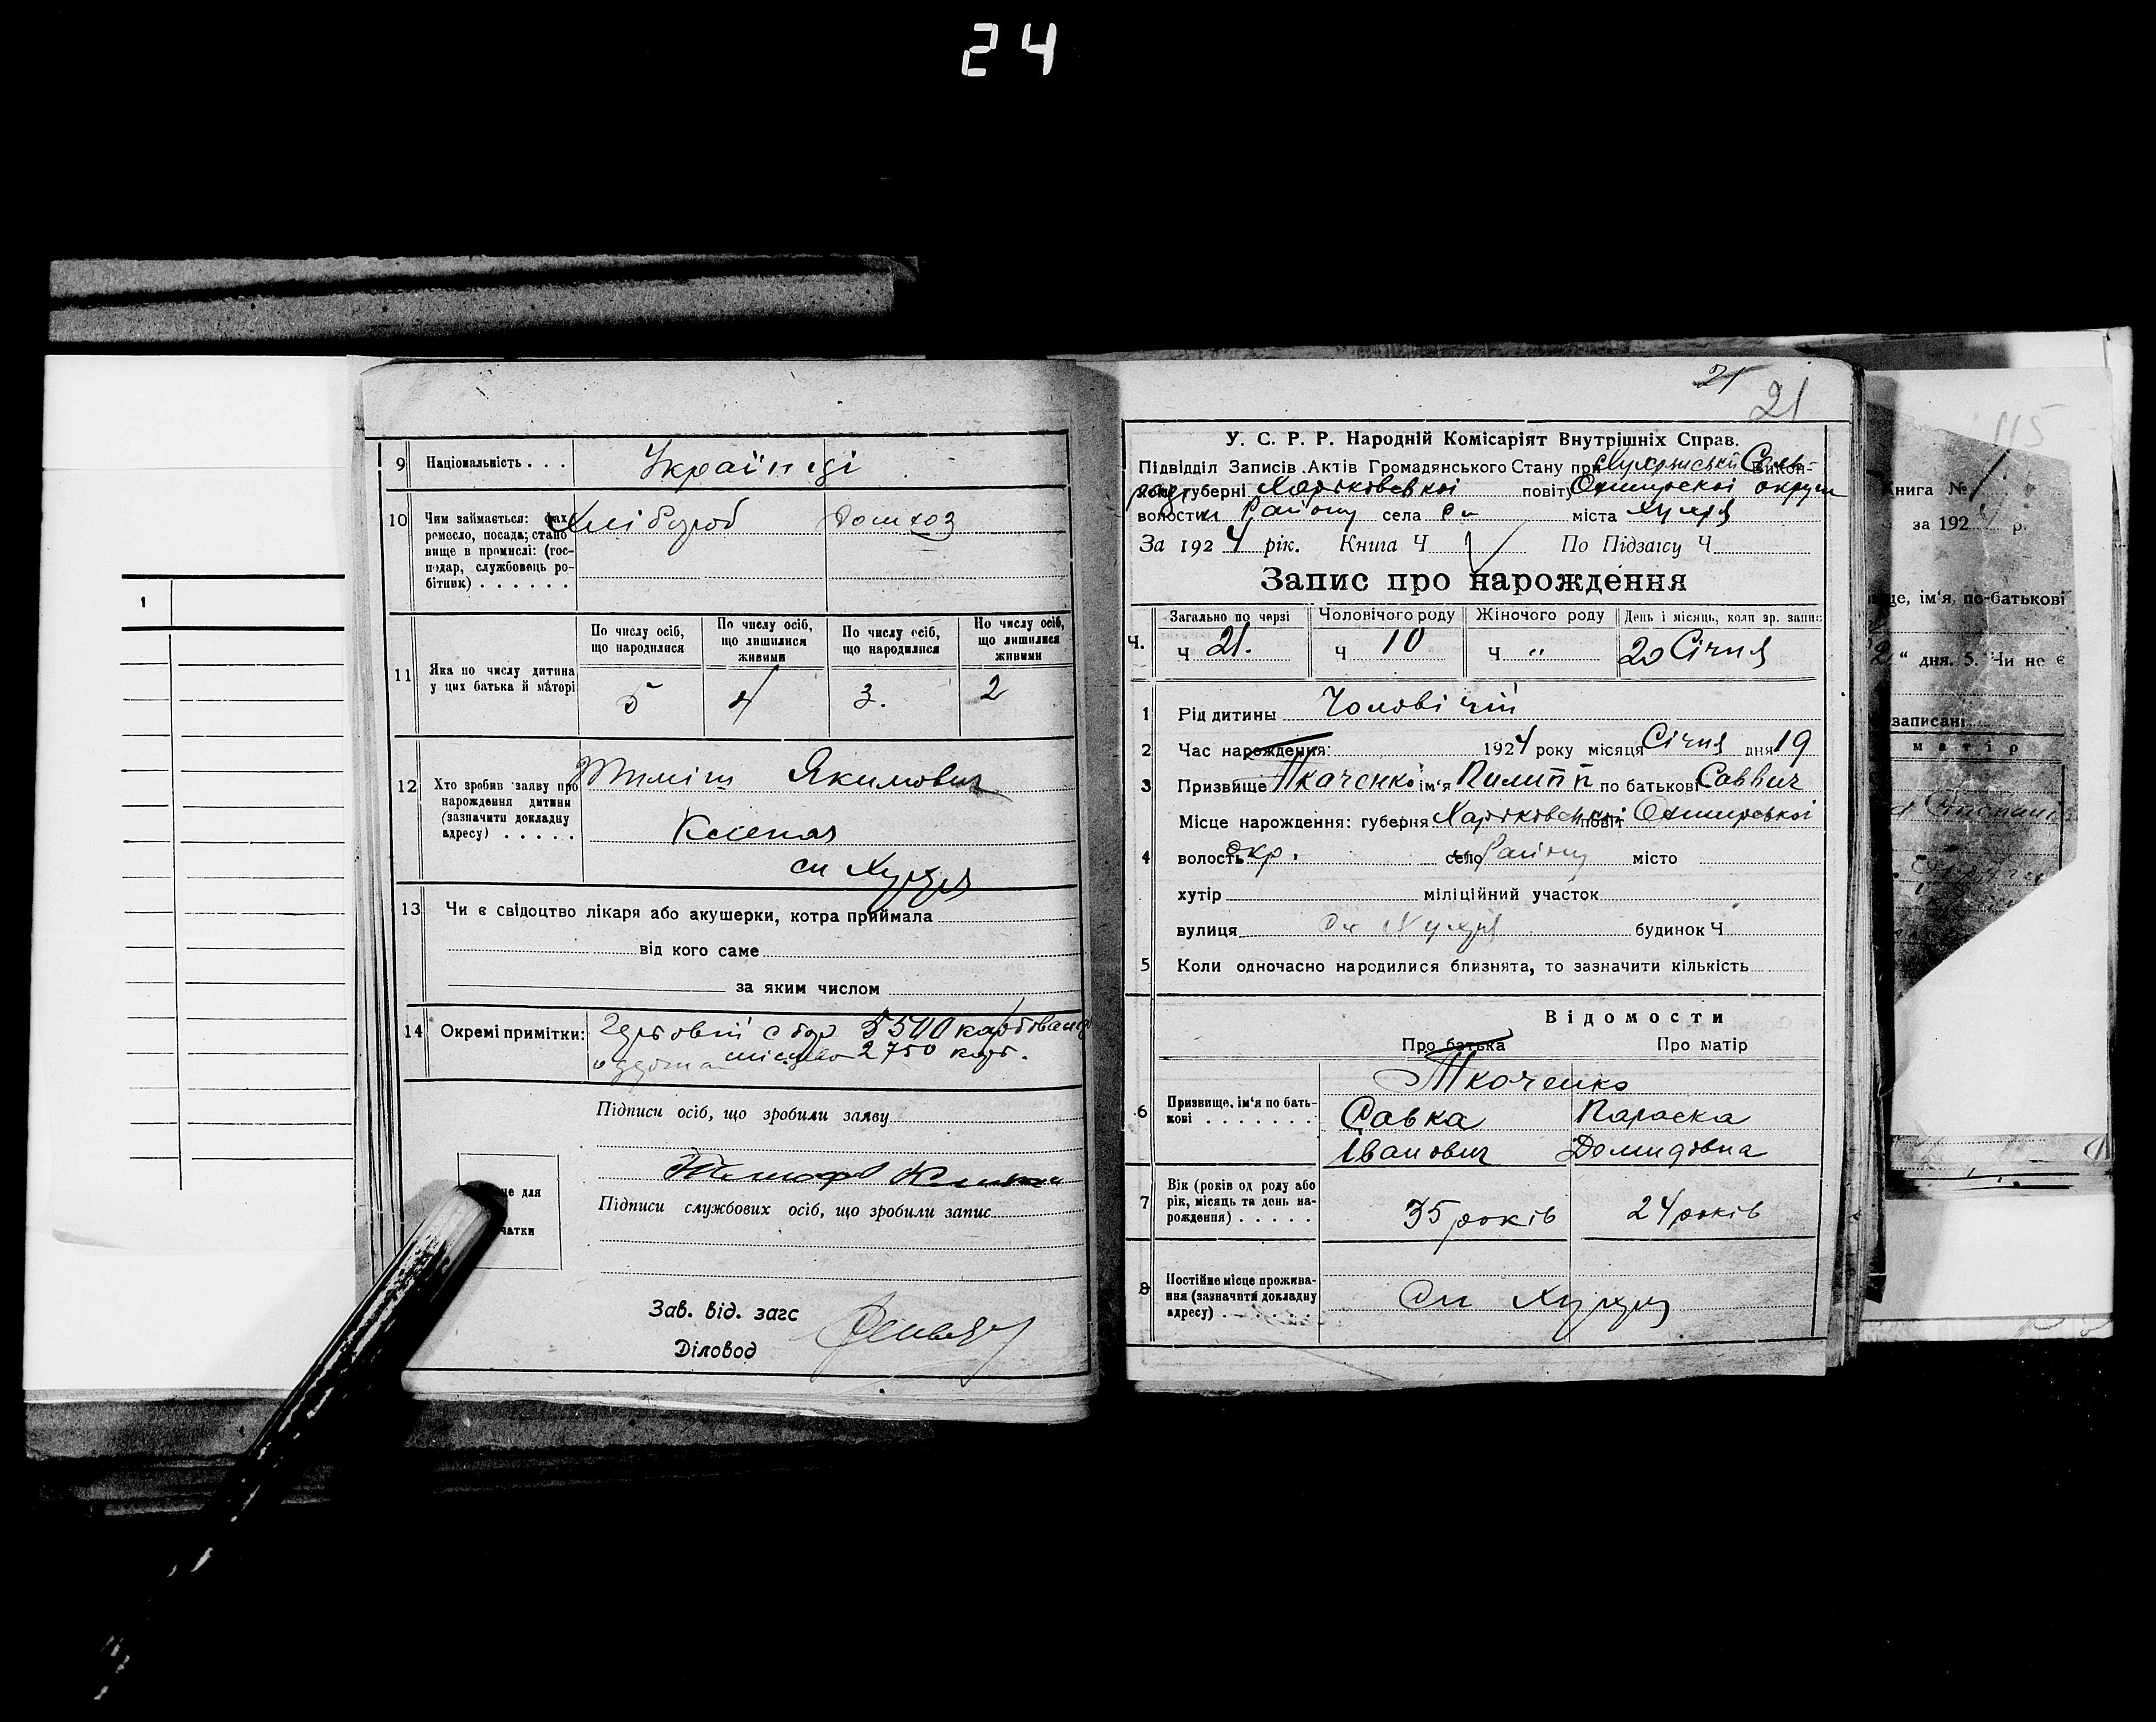 24
9 Національність . . . Українці
10 Чим займається: фах, Хлібороб Домхоз
ремесло, посада; стано-
вище в промислі: (гос-
подар, службовець ро-
бітник) . . . . . .
11 Яка по числу дитина
у цих батька й матері
По числу осіб, що народилися
По числу осіб, що лишилися живими
По числу осіб, що народилися
По числу осіб, що лишилися живими
5 4 3. 2
12 Хто зробив заяву про
нарождення дитини
(зазначити докладну
адресу) . . . . .
Якимович
сл Хухря
13 Чи є свідоцтво лікаря або акушерки, котра приймала
від кого саме
за яким числом
14 Окремі примітки: сбор 5500 карбованц
2750 карб.
Підписи осіб, що зробили заяву
Підписи службових осіб, що зробили запис
Зав. від. загс
Діловод
21
21
У. С. Р. Р. Народній Комісаріят Внутрішніх Справ.
Підвідділ Записів Актів Громадянського Стану при Хухрянській Сель-
губерні Харьковської повіту Охтирскої округи
волости Району села сл міста Хухря
За 1924 рік. Книга Ч 1 По Підзагсу Ч
Запис про нарождення
Ч. Загально по черзі Чоловічого роду Жіночого роду День і місяць, коли зр. запис
Ч 21. Ч 10 Ч " 20 Січня
1 Рід дитини Чоловічий
2 Час нарождення: 1924 року місяця Січня дня 19
3 Призвище Ткаченко ім'я Пилипп по батькові Саввич
Місце нарождення: губерня Харьковської повіт Охтирської
4 волость окр. село Району місто
хутір міліційний участок
вулиця Сл Хухря будинок Ч
5 Коли одночасно народилися близнята, то зазначити кількість
Відомости
Про батька Про матір
6 Призвище, ім'я по бать-
кові . . . . . . .
Ткоченко
Савка Параска
Іванович Демидовна
7 Вік (років од роду або
рік, місяць та день на-
рождення) . . . . .
35 років 24 років
8 Постійне місце прожива-
ння (зазначити докладну
адресу) . . . . . .
Сл Хухря
115
Книга № 1
за 1924 р.
ім'я, по-батькові
" дня. 5. Чи не є
записані
матір
1